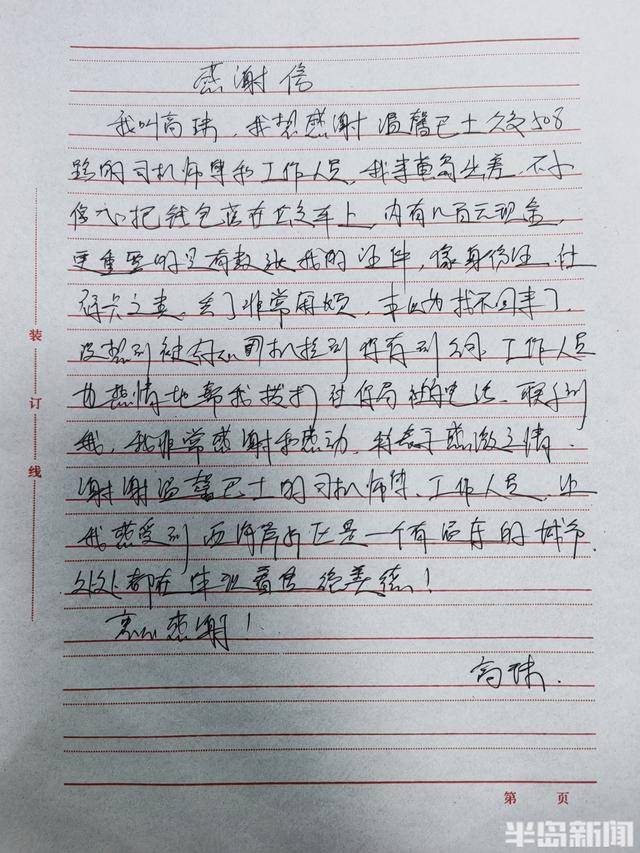 感谢信
我叫高珠,我想感谢温馨巴士公交508
路的司机师傅和工作人员,我来黄岛出差,不小
心把钱包落在公交车上,内有几百元现金,
更重要的是有数张我的证件,像身份证、社
保卡之类,丢了非常麻烦,本以为找不回来了,
没想到被好心司机捡到 到公司,工作人员
热情地帮我拨打社保局 的电话,联系到
我,我非常感谢和感动,特表示感激之情,
谢谢温馨巴士的司机师傅、工作人员,让
我感受到西海岸 区是一个有温度的城市,
处处都在体现着真 善 !
衷心感谢!
高珠.
装
订
线
第 页
半岛新闻